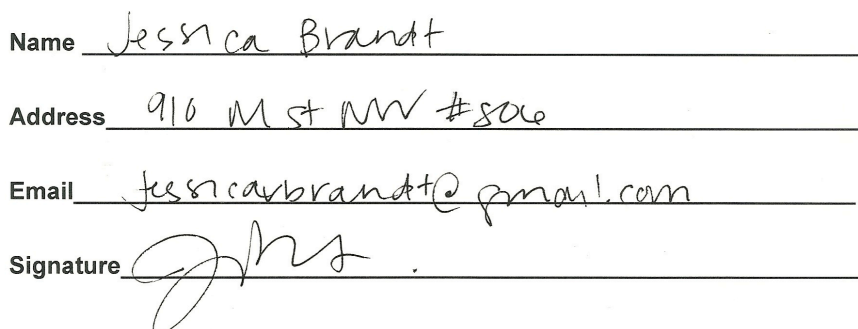 Name Jessica Brandt
Address 910 M St NW #806
Email jessicarbrandt@gmail.com
Signature